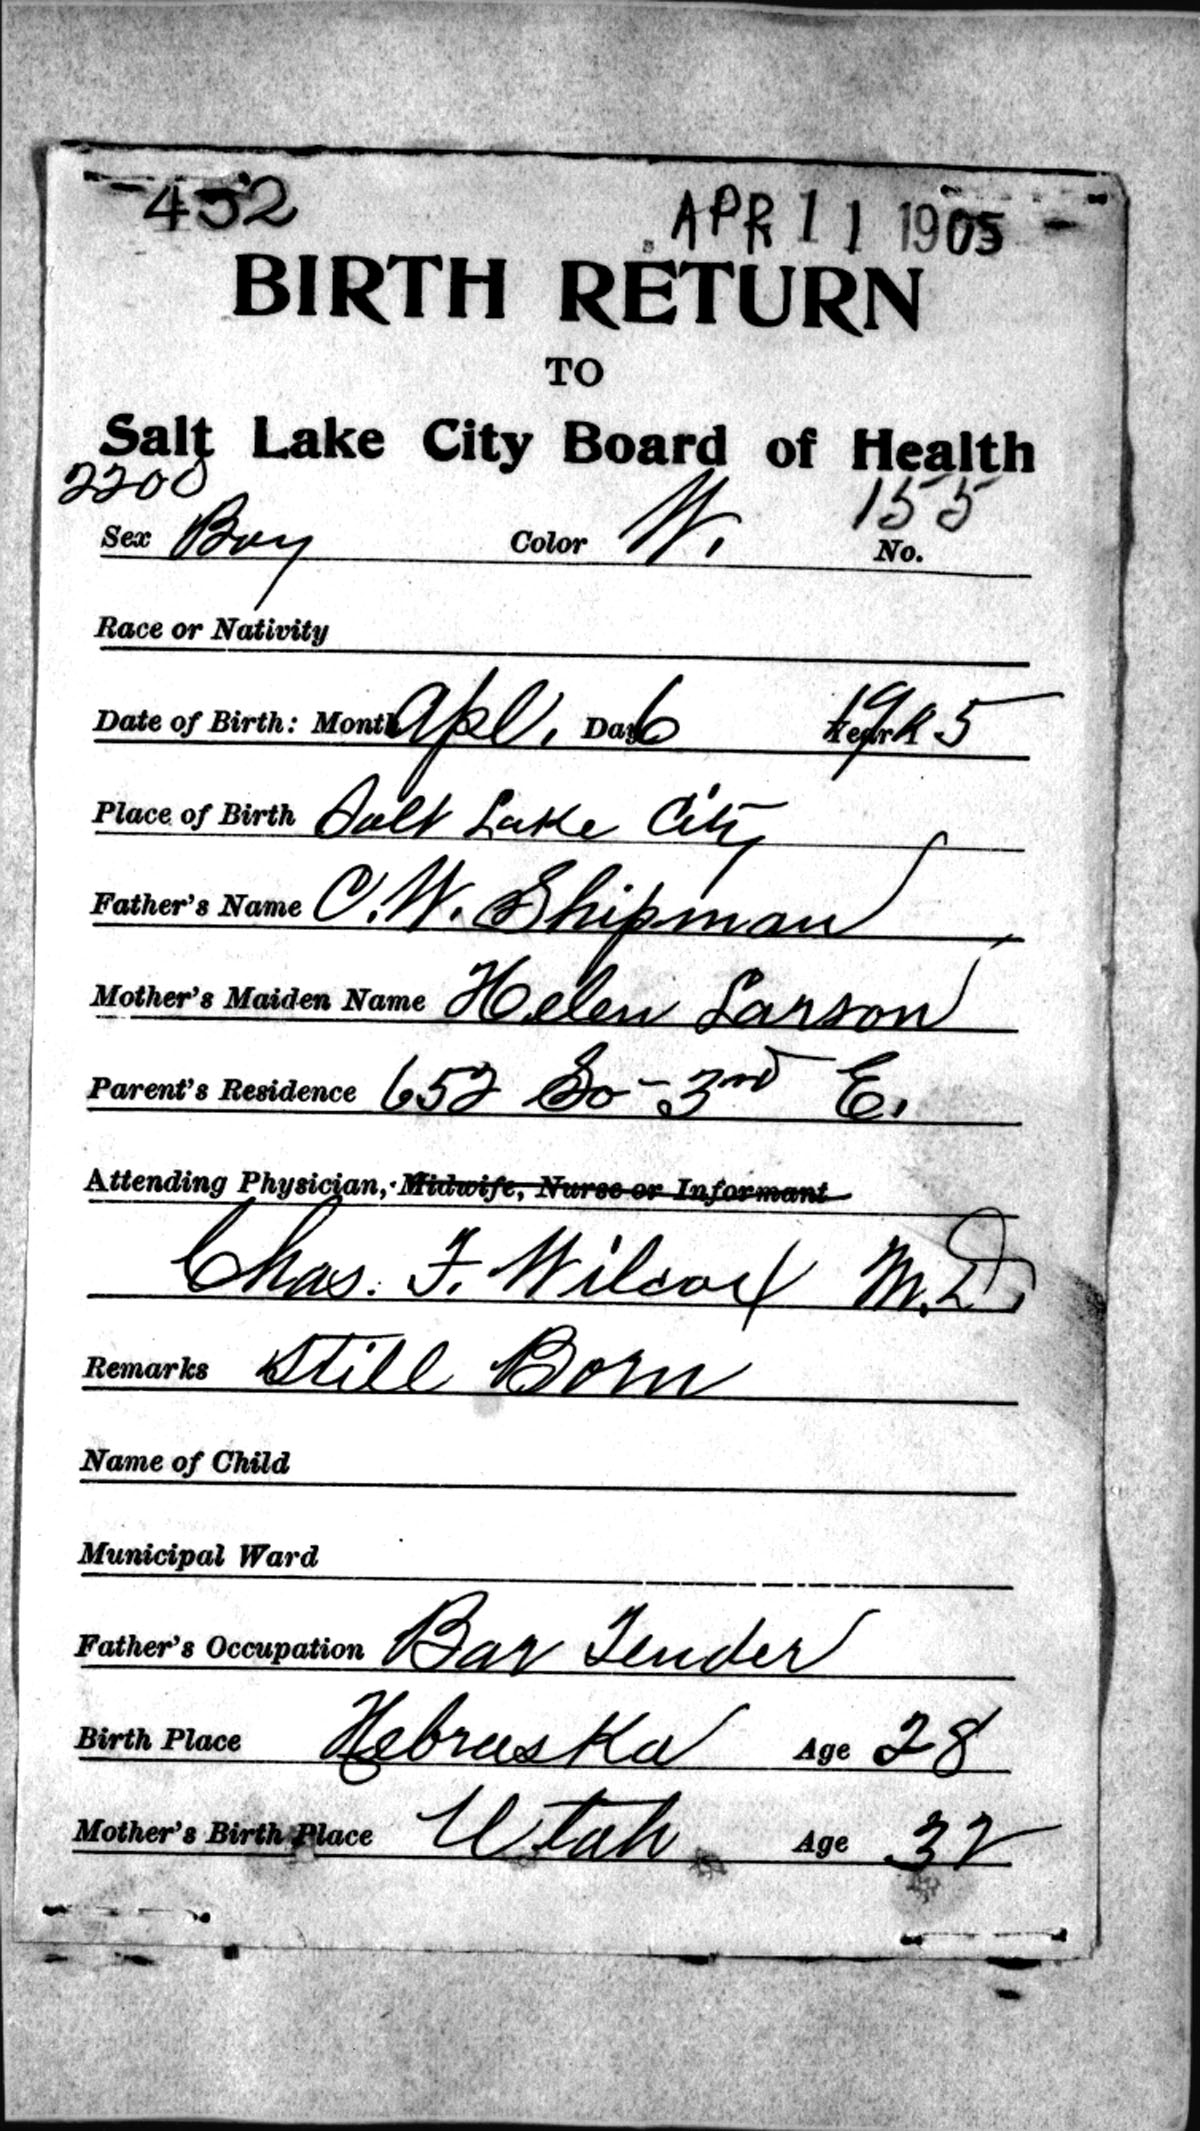 452 APR 11 1905
BIRTH RETURN
TO
Salt Lake City Board of Health
2200 155
Sex Boy Color W. No.
Race or Nativity
Date of Birth: Month Apl. Day 6 Year 1905
Place of Birth Salt Lake City
Father's Name C. W. Shipman
Mother's Maiden Name Helen Larson
Parent's Residence 652 So - 3rd E.
Attending Physician, Midwife, Nurse or Informant
Chas. F. Wilcox M.D.
Remarks Still Born
Name of Child
Municipal Ward
Father's Occupation Bar Tender
Birth Place Nebraska Age 28
Mother's Birth Place Utah Age 32